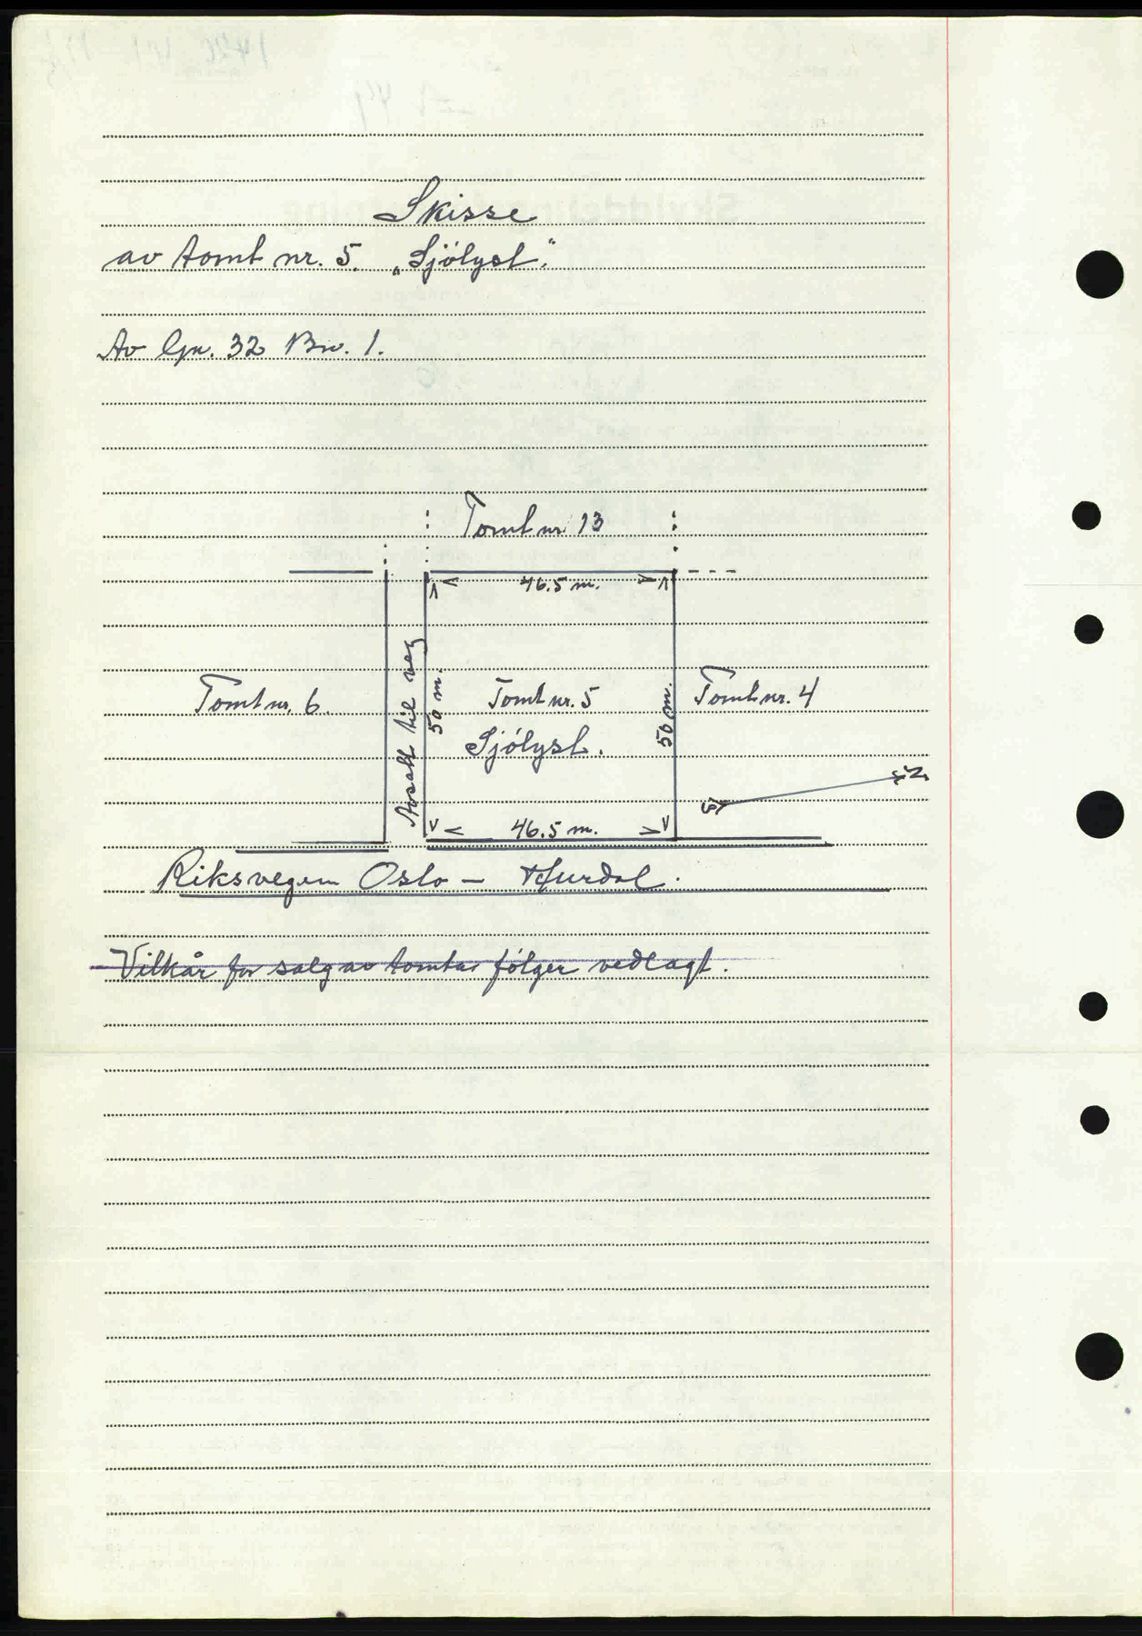 Skisse
av tomt nr. 5. „Sjölyst“.
Av Gn. 32 Bn. 1.
Tomt nr 13
46.5 m.
Tomt nr. 6.
Avsatt til veg
50 m.
Tomt nr. 5
Sjölyst.
50 m.
Tomt nr. 4
N.
S
46.5 m.
Riksvegen Oslo – Hurdal.
Vilkår for salg av tomter følger vedlagt.